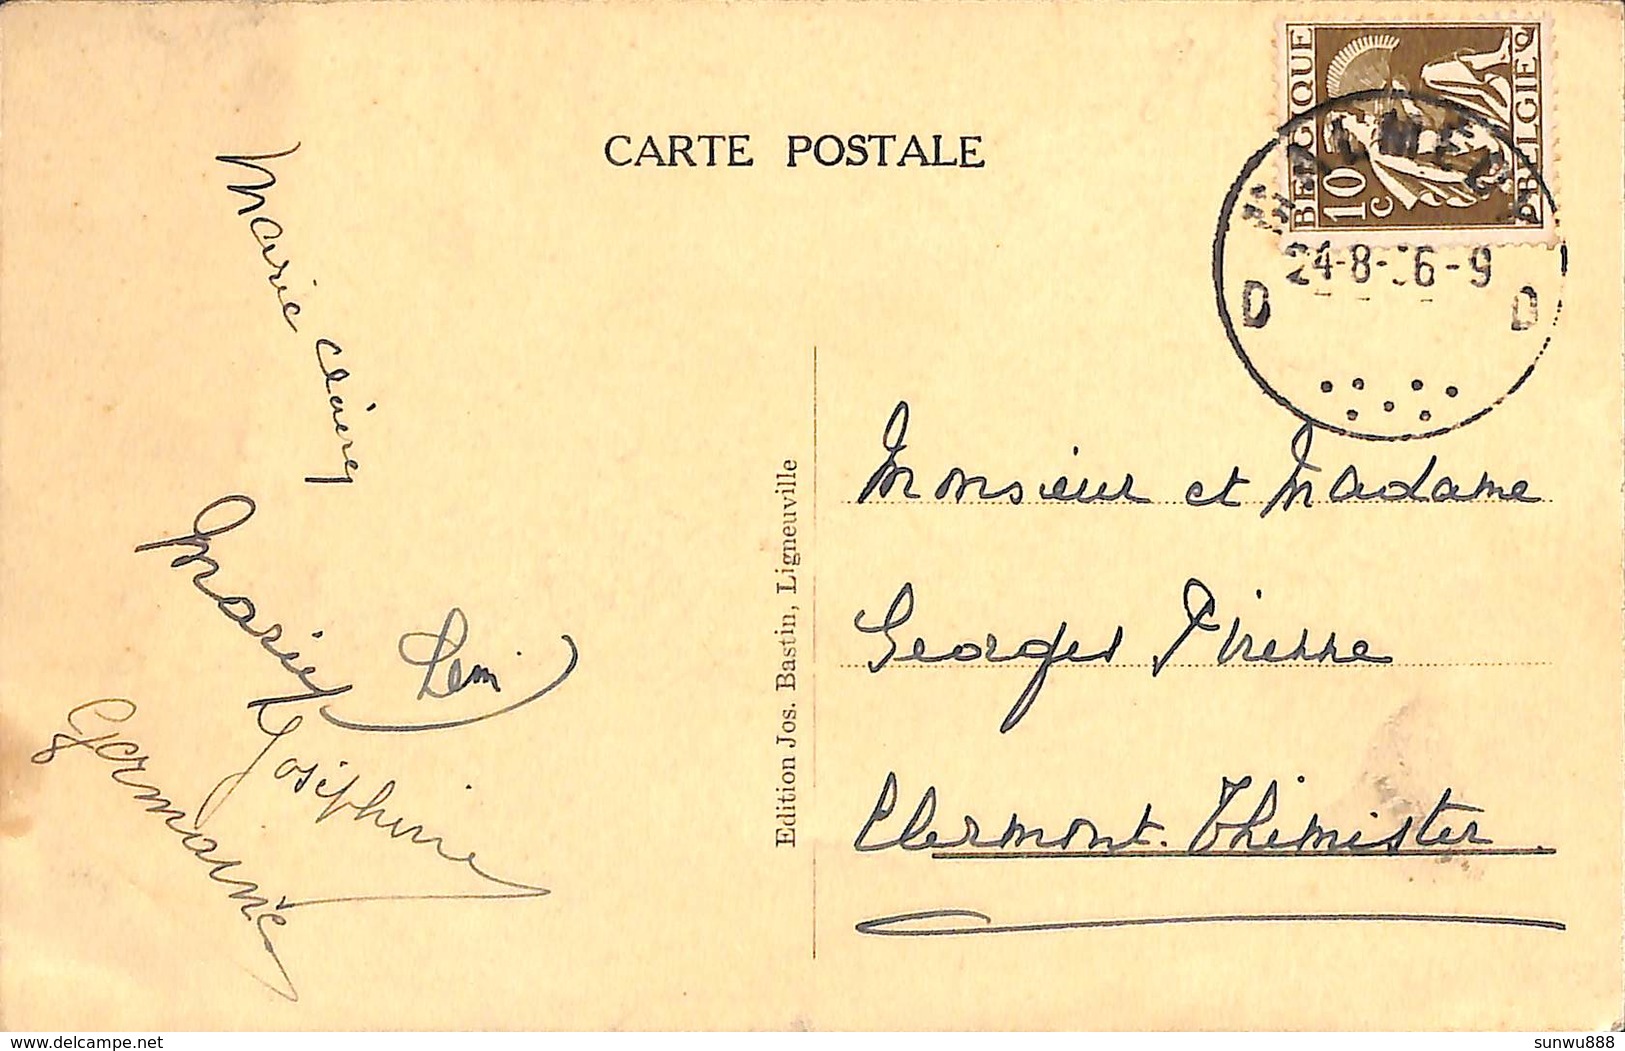 CARTE POSTALE
BELGIQUE
10
c
BELGIË
MALMEDY
24-8-36-9
D D
Marie Claire
Marie
Joséphine
Germaine
Edition Jos. Bastin, Ligneuville
Monsieur et Madame
Georges Pirenne
Clermont. Thimister
delcampe.net
sunwu888